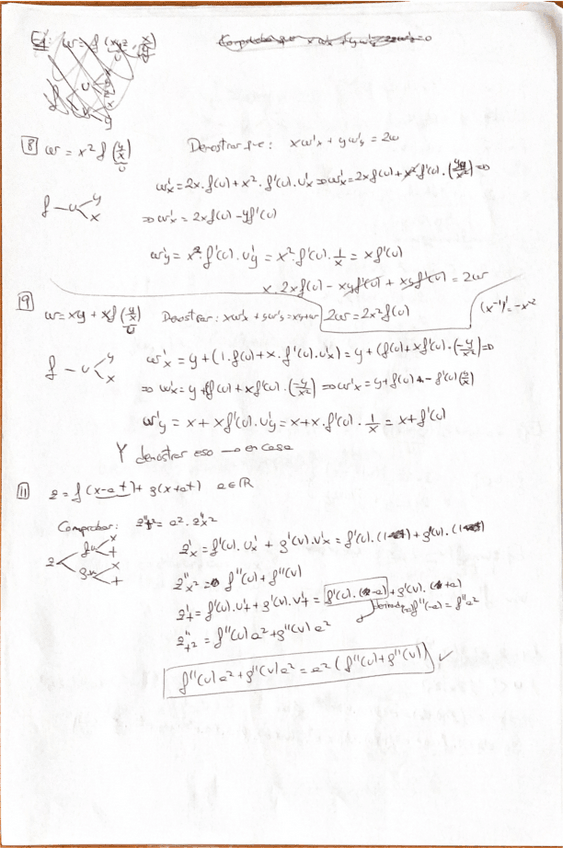 Ej: w = f(xyz, x/y)
8 w = x² f(y/x) Demostrar que: xw'x + yw'y = 2w
u
w'x = 2x·f(u) + x²·f'(u)·u'x ⇒ w'x = 2x f(u) + x² f'(u)·(-y/x²) ⇒
f — u < y x
⇒ w'x = 2x f(u) - y f'(u)
w'y = x²·f'(u)·u'y = x²·f'(u)·1/x = x f'(u)
x·2x f(u) - xy f'(u) + xy f'(u) = 2w
2w = 2x² f(u)
(x⁻¹)' = -x⁻²
9 w = xy + x f(y/x) Demostrar: xw'x + yw'y = xy + w
u
f — u < y x
w'x = y + (1·f(u) + x·f'(u)·u'x) = y + (f(u) + x f'(u)·(-y/x²)) ⇒
⇒ w'x = y + f(u) + x f'(u)·(-y/x²) ⇒ w'x = y + f(u) - f'(u)(y/x)
w'y = x + x f'(u)·u'y = x + x·f'(u)·1/x = x + f'(u)
Y demostrar eso → en casa
11 z = f(x-at) + g(x+at) a∈ℝ
Comprobar: z''t² = a²·z''x²
z'x = f'(u)·u'x + g'(v)·v'x = f'(u)·(1) + g'(v)·(1)
z < fu < x t
gv < x t
z''x² = f''(u) + g''(v)
z't = f'(u)·u't + g'(v)·v't = f'(u)·(-a) + g'(v)·(+a)
f''(-a) = f''a²
z''t² = f''(u) a² + g''(v) a²
f''(u) a² + g''(v) a² = a² (f''(u) + g''(v)) ✓